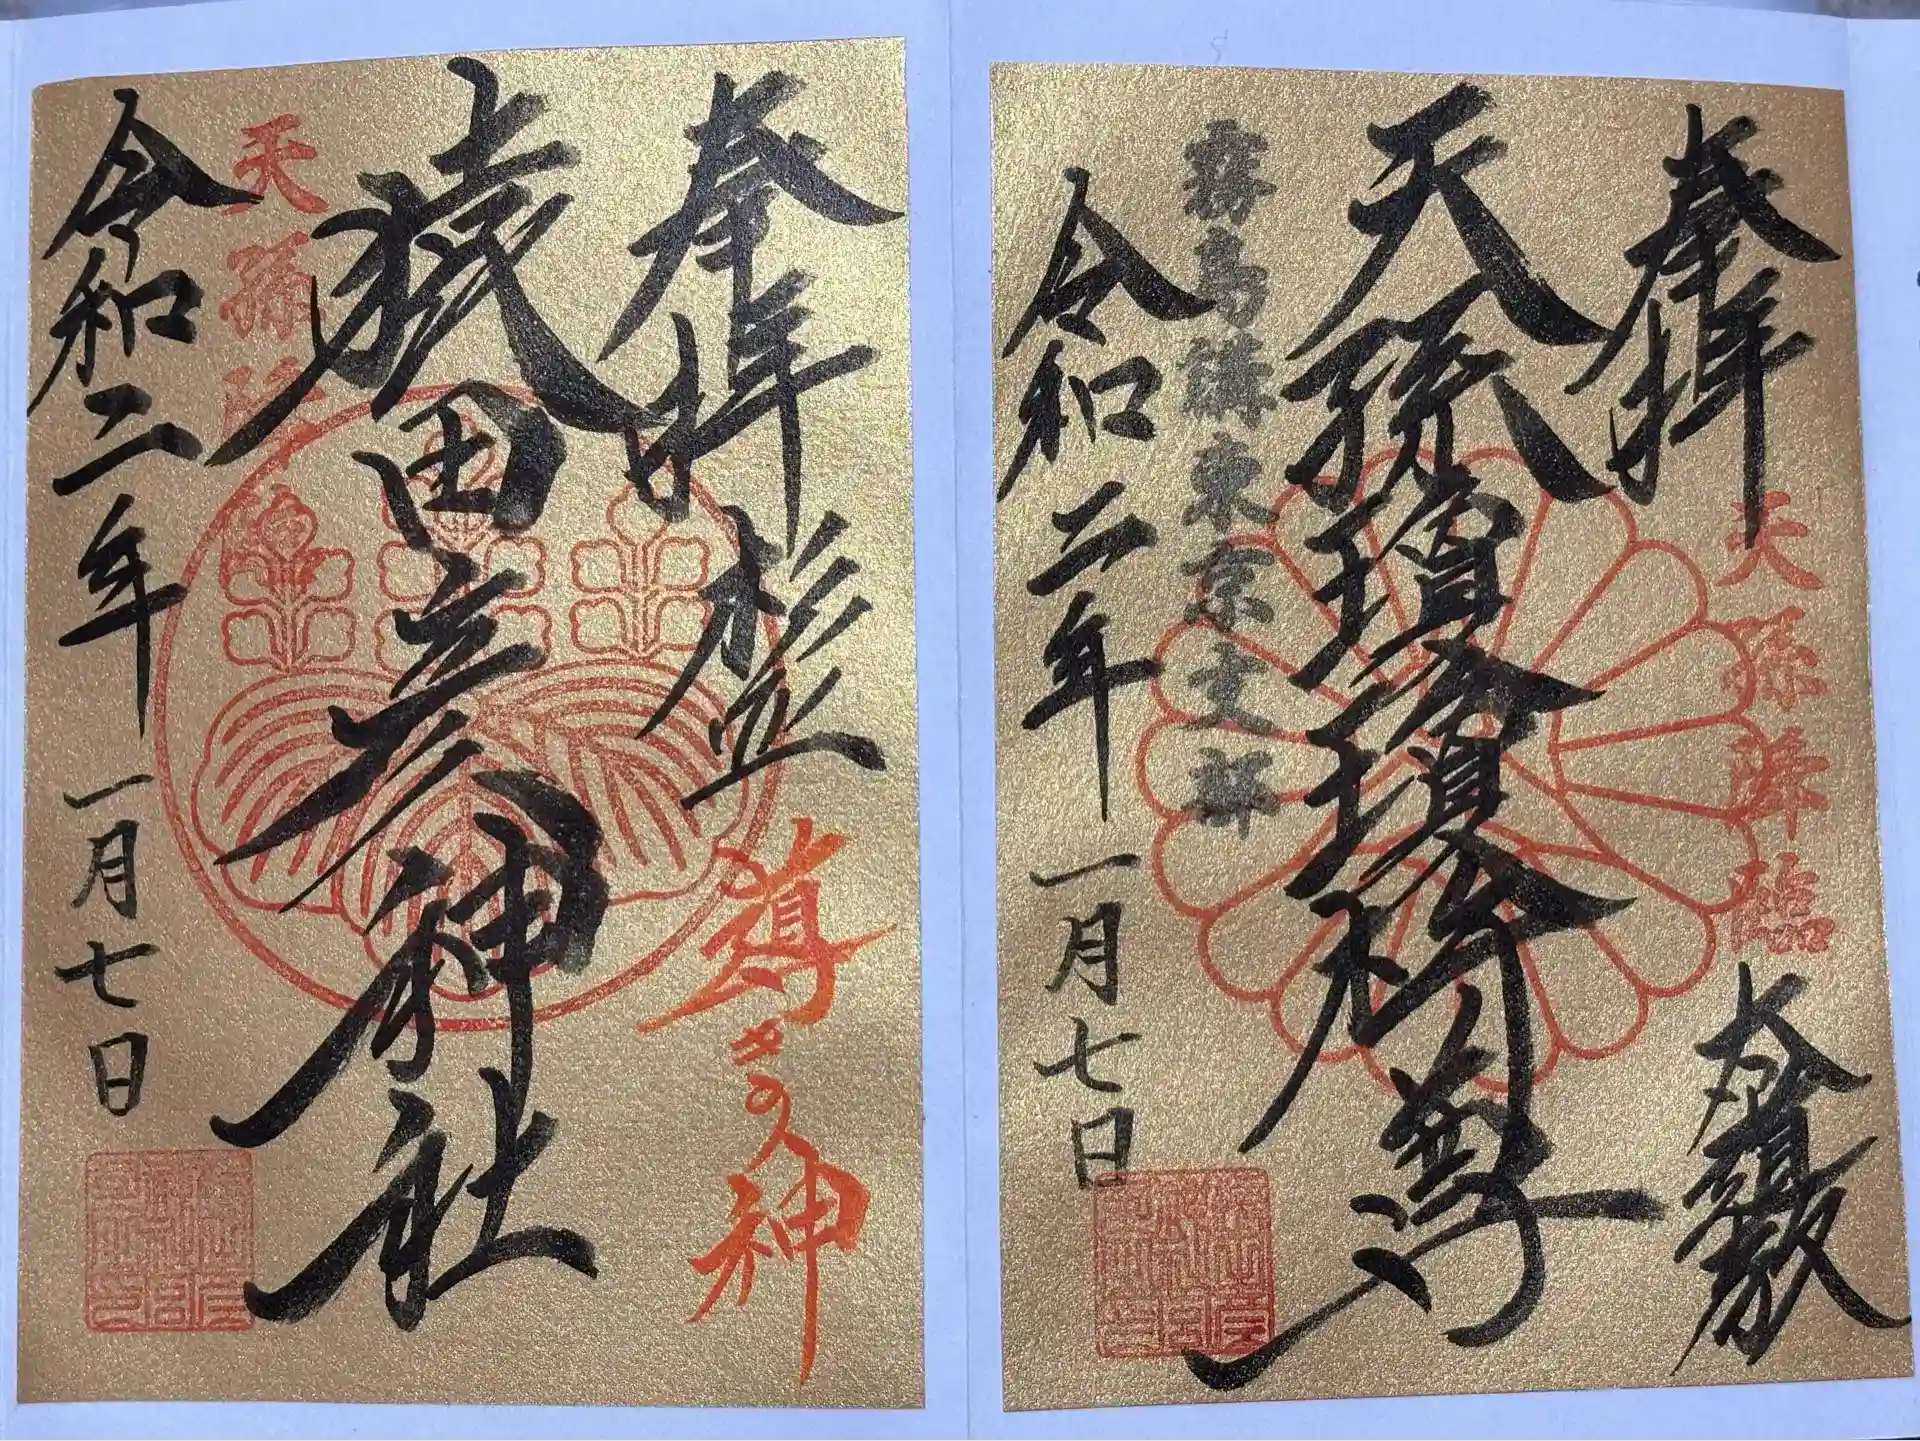 奉拝
天孫降臨
天孫瓊瓊杵尊
霧島講東京支部
令和二年一月七日
奉拝 杉並
導きの神
猿田彦神社
天孫降臨
令和二年一月七日